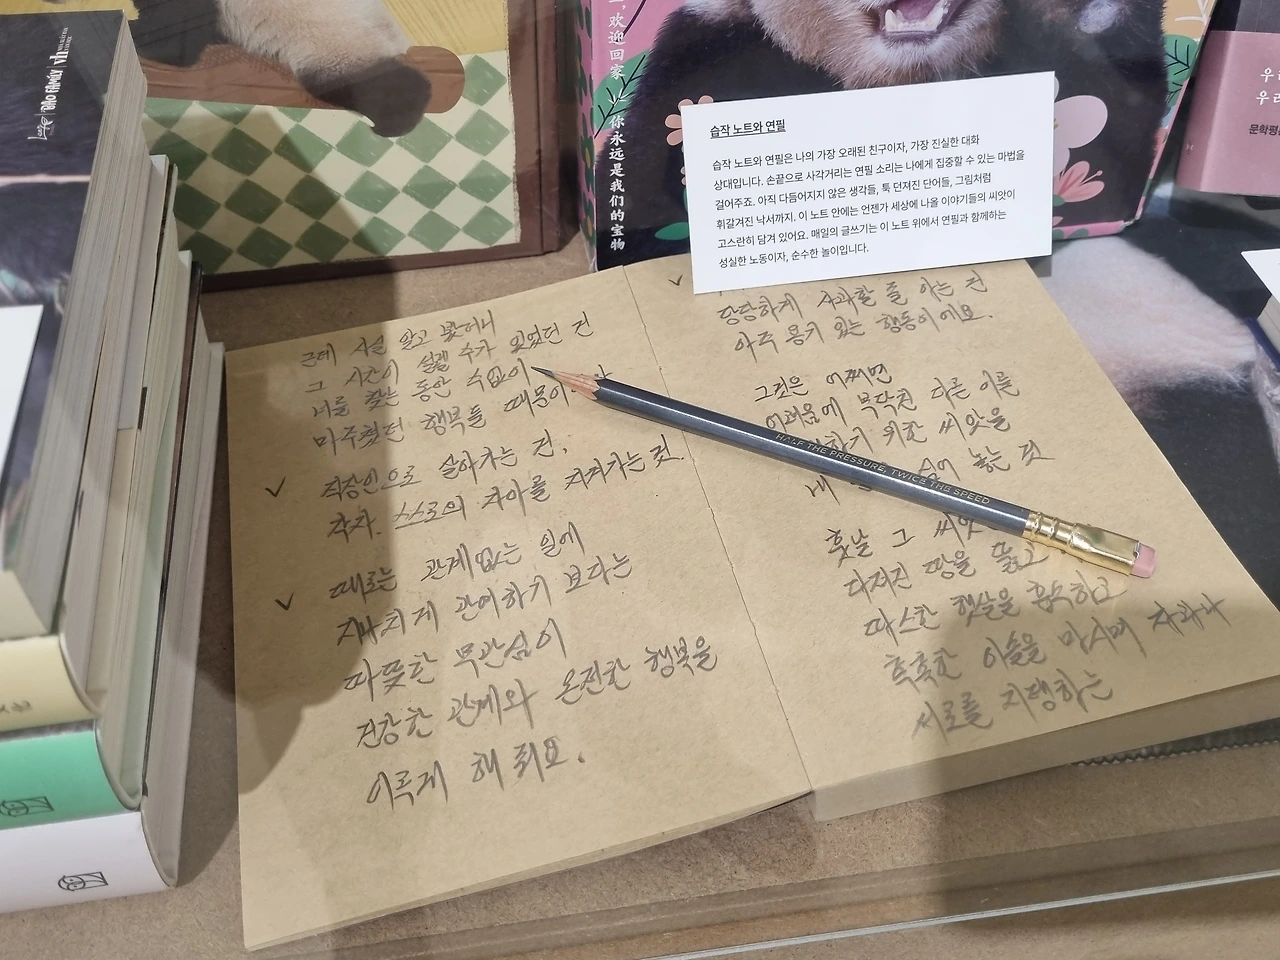 BAO FAMILY
二,欢迎回家
你永远是我们的宝物
습작 노트와 연필
습작 노트와 연필은 나의 가장 오래된 친구이자, 가장 진실한 대화
상대입니다. 손끝으로 사각거리는 연필 소리는 나에게 집중할 수 있는 마법을
걸어주죠. 아직 다듬어지지 않은 생각들, 툭 던져진 단어들, 그림처럼
휘갈겨진 낙서까지. 이 노트 안에는 언젠가 세상에 나올 이야기들의 씨앗이
고스란히 담겨 있어요. 매일의 글쓰기는 이 노트 위에서 연필과 함께하는
성실한 노동이자, 순수한 놀이입니다.
우리
문학평
근데 사실 알고 봤더니
그 시간이 설렐 수가 있었던 건
너를 찾는 동안 수없이
마주쳤던 행복들 때문이
직장인으로 살아가는 건,
각자. 스스로의 자아를 지켜가는 것.
때로는 관계없는 일에
지나치게 관여하기 보다는
따뜻한 무관심이
건강한 관계와 온전한 행복을
이룩게 해 줘요.
당당하게 사과할 줄 아는 건
아주 용기 있는 행동이에요.
그것은 어쩌면
어려움에 맞닥친 다른 이를
하기 위한 씨앗을
내 심어 놓는 것
훗날 그 씨앗
다져진 땅을 뚫고
따스한 햇살을 흡수하고
촉촉한 이슬을 마시며 자라나
서로를 지탱하는
HALF THE PRESSURE, TWICE THE SPEED